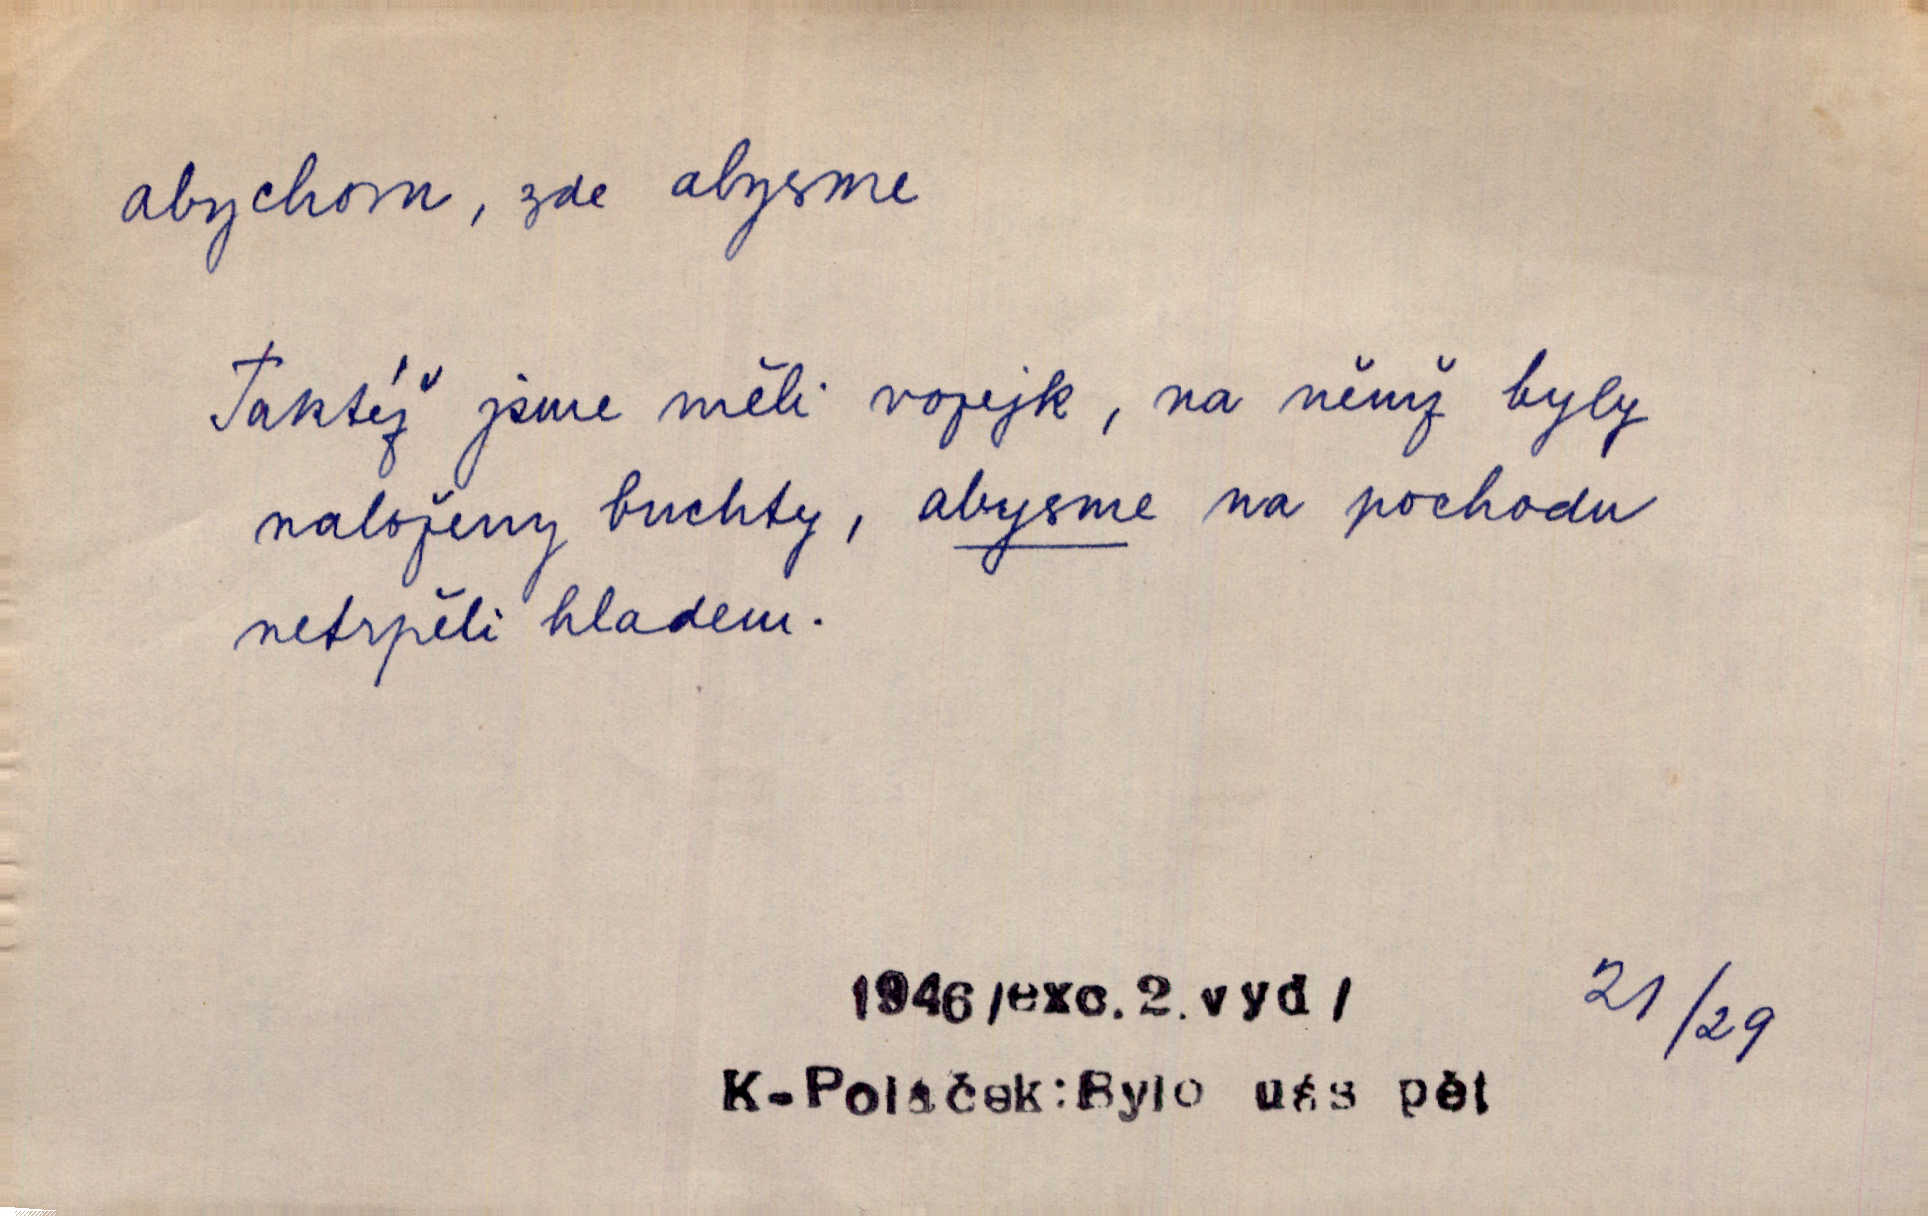 abychom, zde abysme
Taktéž jsme měli vozejk, na němž byly
naloženy buchty, abysme na pochodu
netrpěli hladem.
1946/exc.2.vyd/ 21/29
K-Poláček:Bylo nás pět